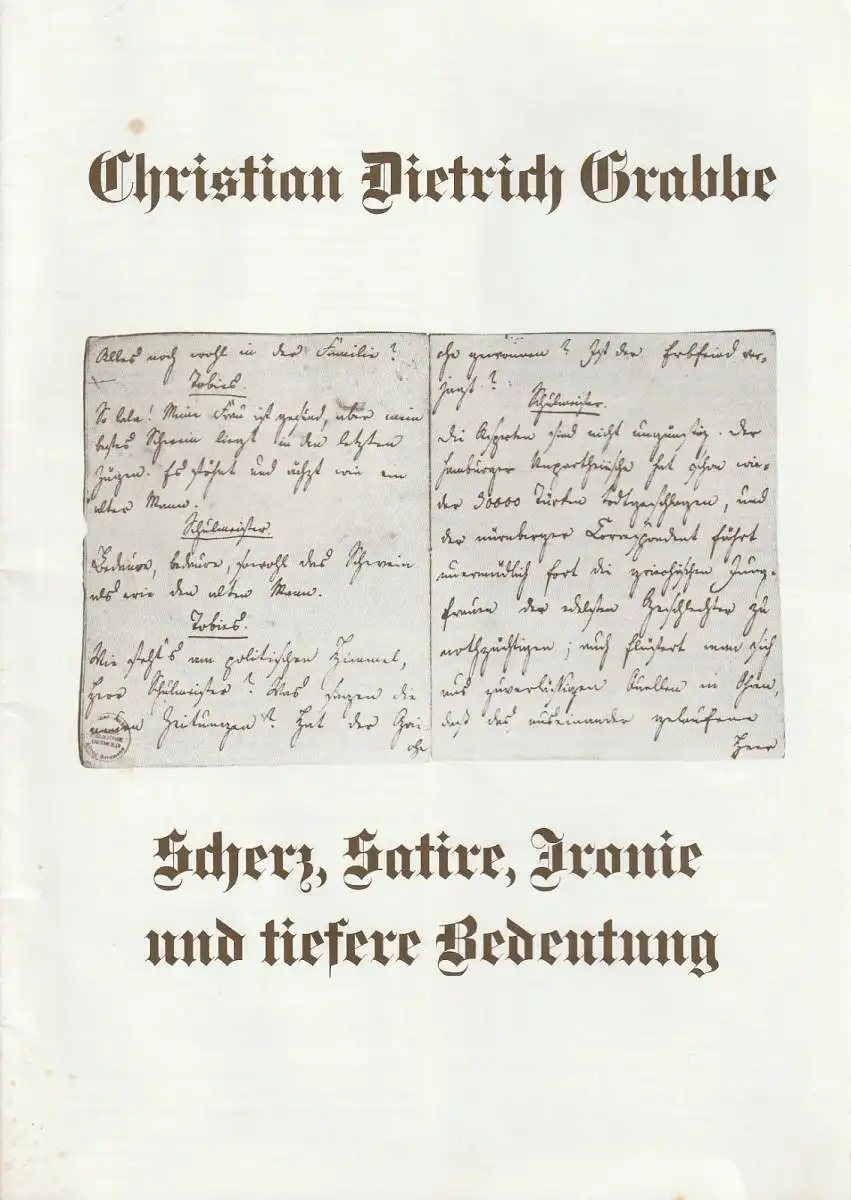 Christian Dietrich Grabbe
Alles noch wohl in der Familie?
Tobies.
So lala! Meine Frau ist gesund, aber mein
bestes Schwein liegt in den letzten
Zügen. Es stöhnt und ächzt wie ein
alter Mann.
Schulmeister.
Bedaure, bedaure, sowohl das Schwein
als wie den alten Mann.
Tobies.
Wie steht's am politischen Himmel,
Herr Schulmeister? Was sagen die
neuen Zeitungen? Hat der Grie-
che
che gewonnen? Ist der Erbfeind ver-
jagt?
Schulmeister.
Die Aspecten sind nicht ungünstig. Der
Hamburger Unpartheiische hat schon wie-
der 30000 Türken todtgeschlagen, und
der nürnberger Correspondent fährt
unermüdlich fort die griechischen Jung-
frauen der edelsten Geschlechter zu
nothzüchtigen; auch flüstert man sich
aus zuverläßigen Quellen in Ohren,
daß das auseinander gelaufene
Heer
Scherz, Satire, Ironie
und tiefere Bedeutung